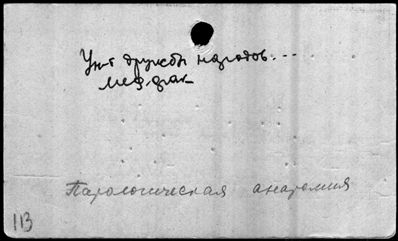 Ун-т дружбы народов...
Мед.фак
Патологическая анатомия
113